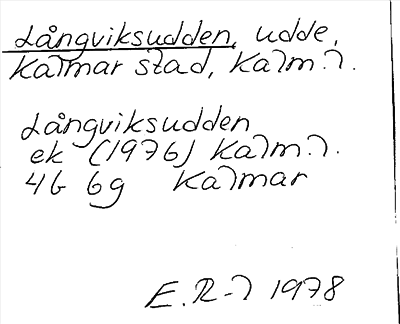 Långviksudden, udde,
Kalmar stad, Kalm.l.
Långviksudden
ek (1976) Kalm.l.
4G 6g Kalmar
E.R-l 1978